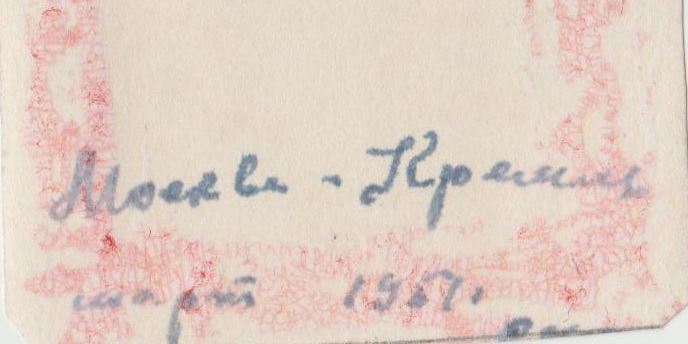 Москва - Кремль
март 1957.